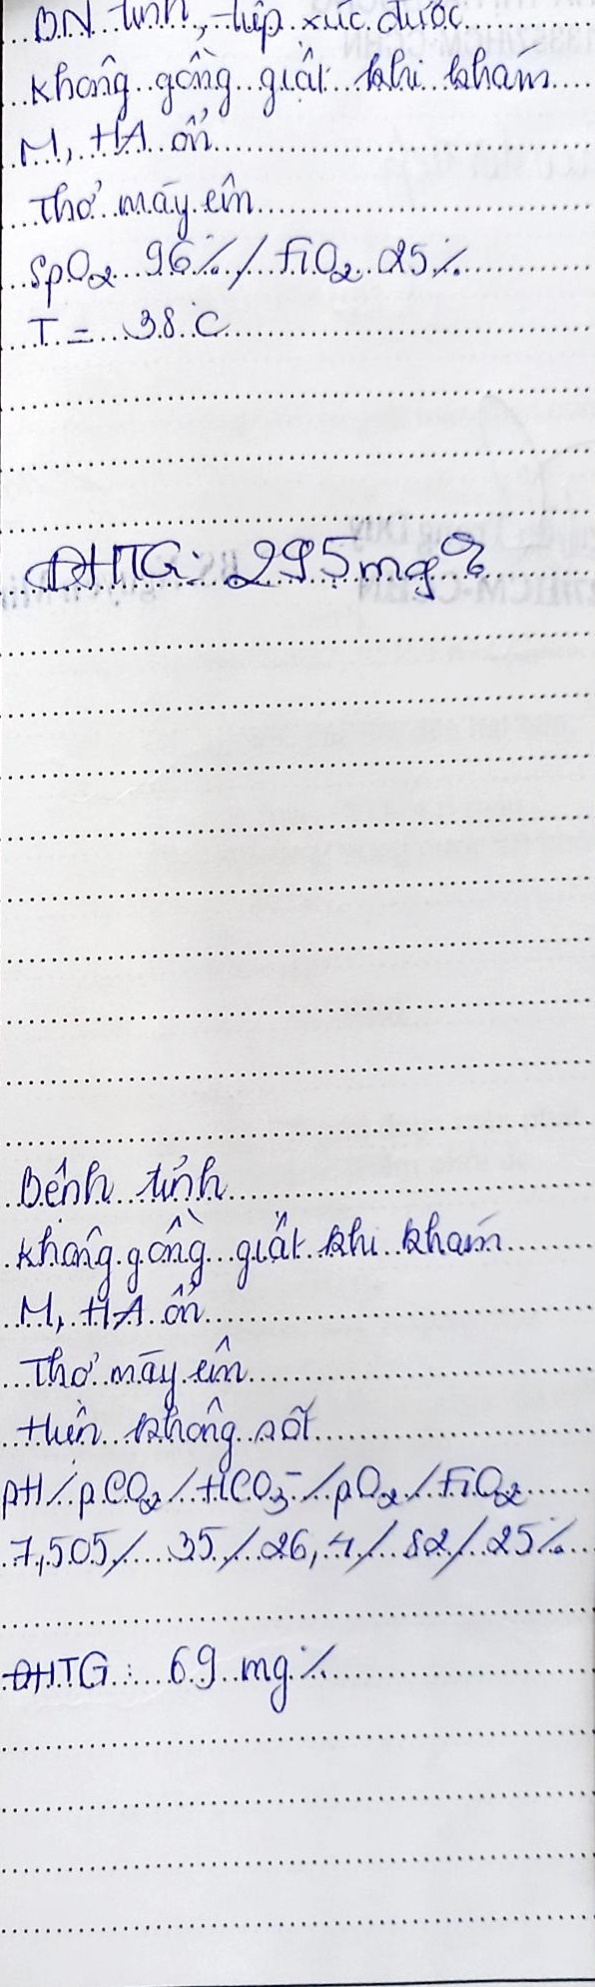 BN tỉnh, tiếp xúc được
Không gồng giật khi khám
M, HA ổn
Thở máy êm
SpO2 96% / FiO2 25%
T = 38°C
ĐHTG: 295 mg%
Bệnh tỉnh
Không gồng giật khi khám
M, HA ổn
Thở máy êm
Hiện không sốt
pH / pCO2 / HCO3- / pO2 / FiO2
7,505 / 35 / 26,4 / 82 / 25%
ĐHTG: 69 mg%